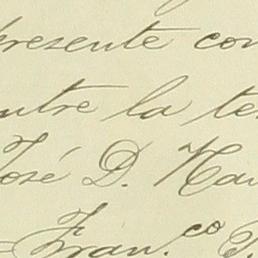 presente con
entre la te
José D. Nav
Fran.co